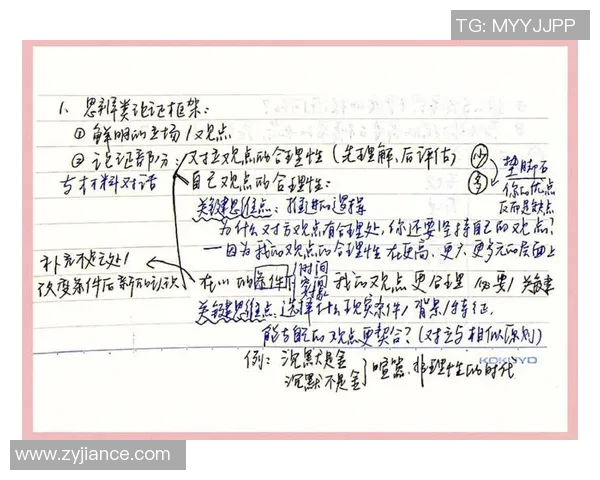 TG: MYYJJPP
1、思辨类论证框架：
① 鲜明的立场/观点
② 论证部分：对立观点的合理性（先理解，后评估）
少
多
垫脚石
你的优点
反而是缺点
与材料对话
自己观点的合理性：
关键思维点：推进的选择
为什么对方观点有合理处，你还要坚持自己的观点？
—因为我的观点的合理性在更高、更广、更多元的层面上
补充不足之处/
改变条件后新的认致
在 的条件/时间
对象
我的观点更合理
必要/关键
关键思维点：选择什么现实条件/背景/特征，
能与自己的观点更契合？（对立与相似原则）
例：沉默是金
沉默不是金
喧嚣、非理性的时代
KOKUYO
www.zyjiance.com